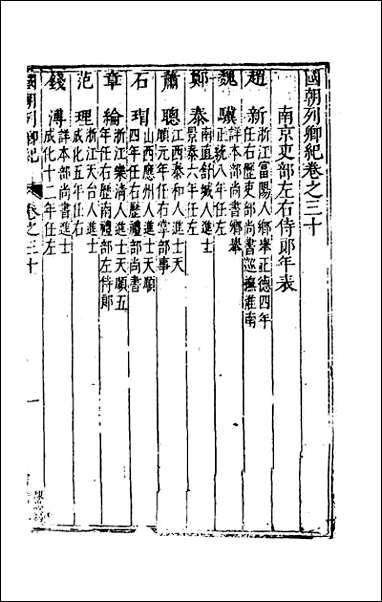 國朝列卿紀卷之三十
南京吏部左右侍郎年表
趙新 浙江富陽人鄉舉正德四年
任右歷吏部尚書巡撫淮南
魏驥 詳本部尚書鄉舉
正統八年任左
鄭泰 南直舒城人進士
景泰六年任左
蕭聰 江西泰和人進士天
順元年任右掌部事
石瑁 山西應州人進士天順
四年任右歷禮部尚書
章綸 浙江樂清人進士天順五
年任右歷南禮部左侍郎
范理 浙江天台人進士
成化五年任右
錢溥 詳本部尚書進士
成化十二年任左
國朝列卿紀
卷之三十
一